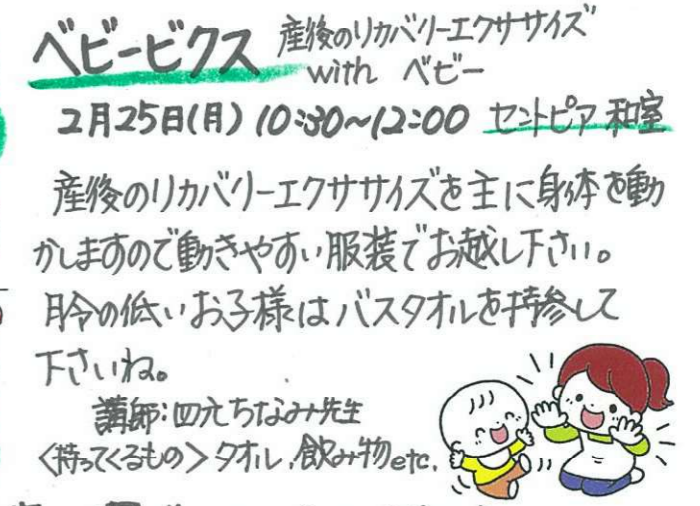 ベビービクス 産後のリカバリーエクササイズ
with ベビー
2月25日(月) 10:30~12:00 セントピア 和室
産後のリカバリーエクササイズを主に身体を動
かしますので動きやすい服装でお越し下さい。
月令の低いお子様はバスタオルを持参して
下さいね。
講師:四元ちなみ先生
<持ってくるもの> タオル、飲み物etc.